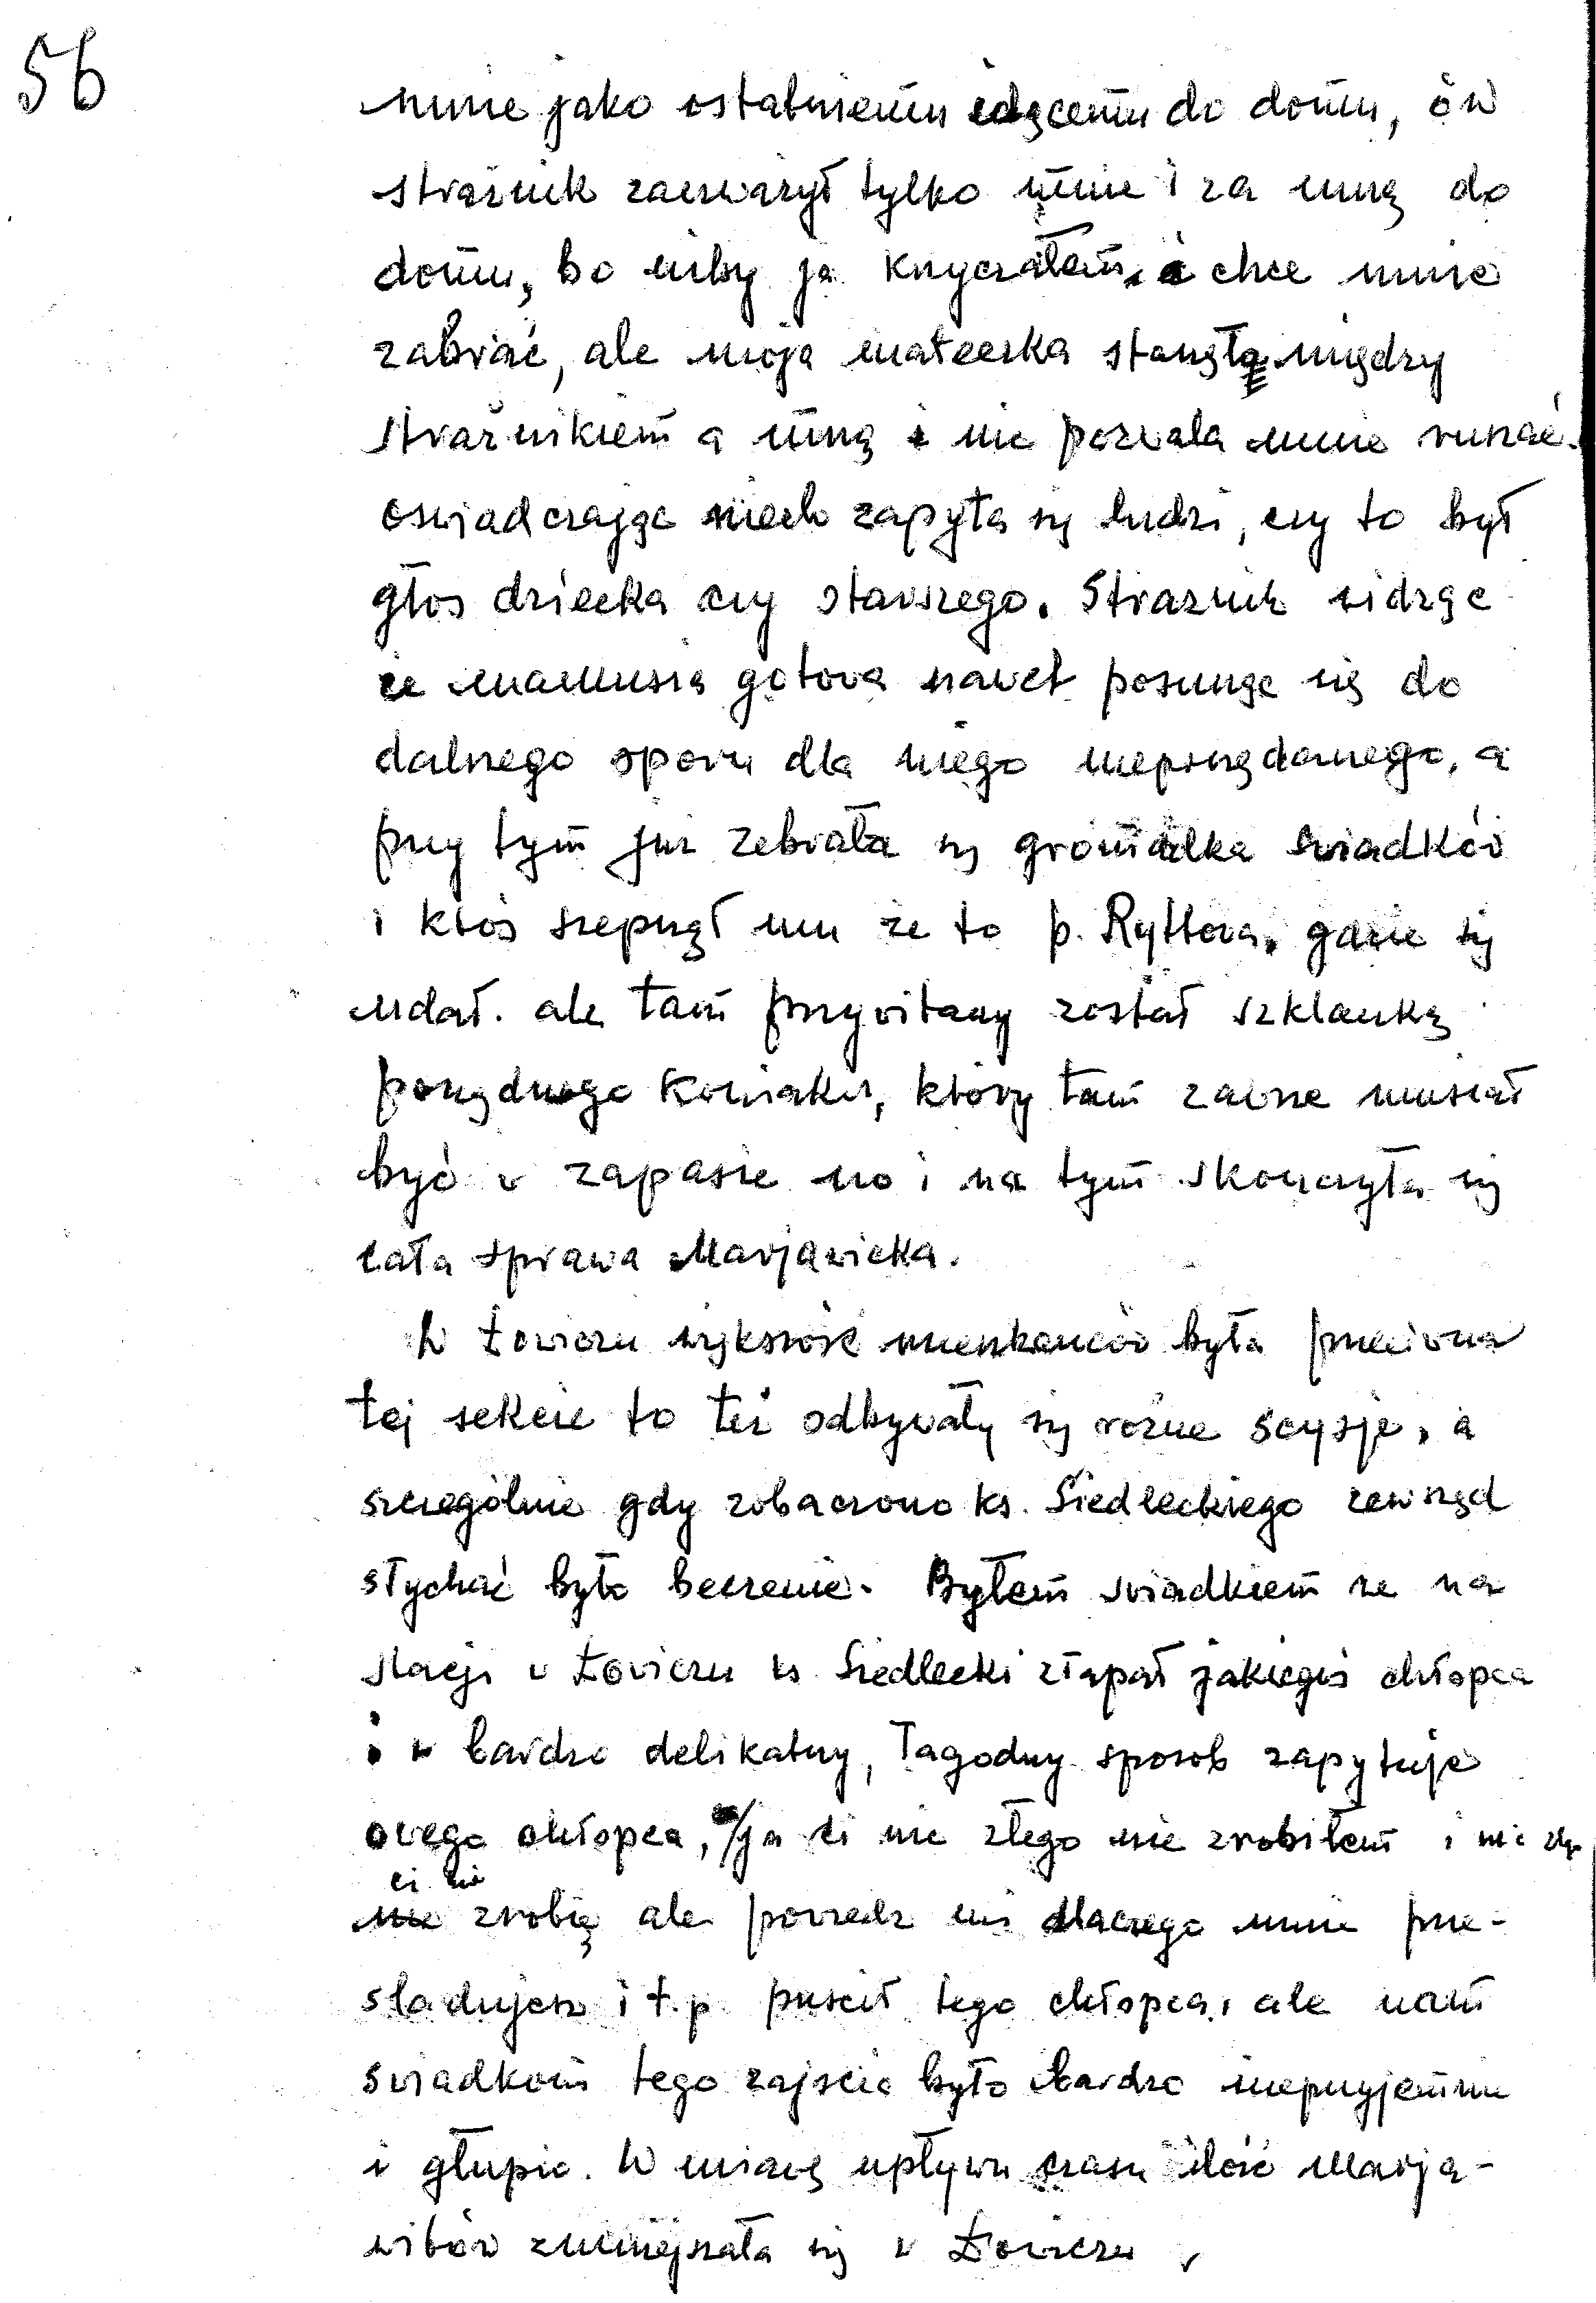 56
mnie jako ostatniemu idącemu do domu, ów
strażnik zauważył tylko mnie i za mną do
domu, bo niby ja krzyczałem, i chce mnie
zabrać, ale moja mateczka stanęła między
strażnikiem a mną i nie pozwala mnie ruszać.
oswiadczając niech zapyta się ludzi, czy to był
głos dziecka czy starszego. Strażnik widząc
że mamusia gotowa nawet posunąc się do
dalszego sporu dla niego niepożądanego, a
przy tym już zebrała się gromadka swiadków
i ktoś szepnął mu że to p. Ryttowa, gdzie się
udał. ale tam przywitany został szklanką
porządnego koniaku, który tam zawsze musiał
być w zapasie no i na tym skonczyła się
cała sprawa Marjawicka.
W Łowiczu większość mieszkanców była przeciwna
tej sekcie to też odbywały się rożne scysje, a
szczególnie gdy zobaczono ks. Siedleckiego zewsząd
słychać było beczenie. Byłem swiadkiem ze na
stacji w Łowiczu ks. Siedlecki złapał jakiegoś chłopca
i w bardzo delikatny, łagodny sposob zapytuje
owego chłopca, ja ci nic złego nie zrobiłem i nic złe
ci nie
zrobię ale powiedz mi dlaczego mnie prze-
sladujesz i t.p. puscił tego chłopca, ale nam
swiadkom tego zajscia było bardzo nieprzyjemnie
i głupio. W miarę upływu czasu ilość Marja-
witów zmniejszała się w Łowiczu